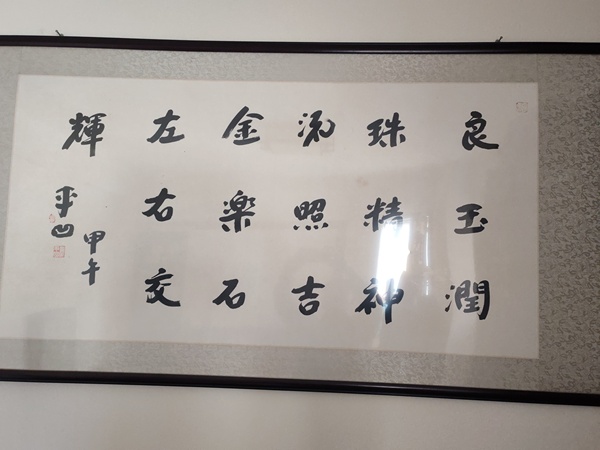 良玉潤
珠精神
流照吉
金樂石
左右交
輝
甲午
平凹